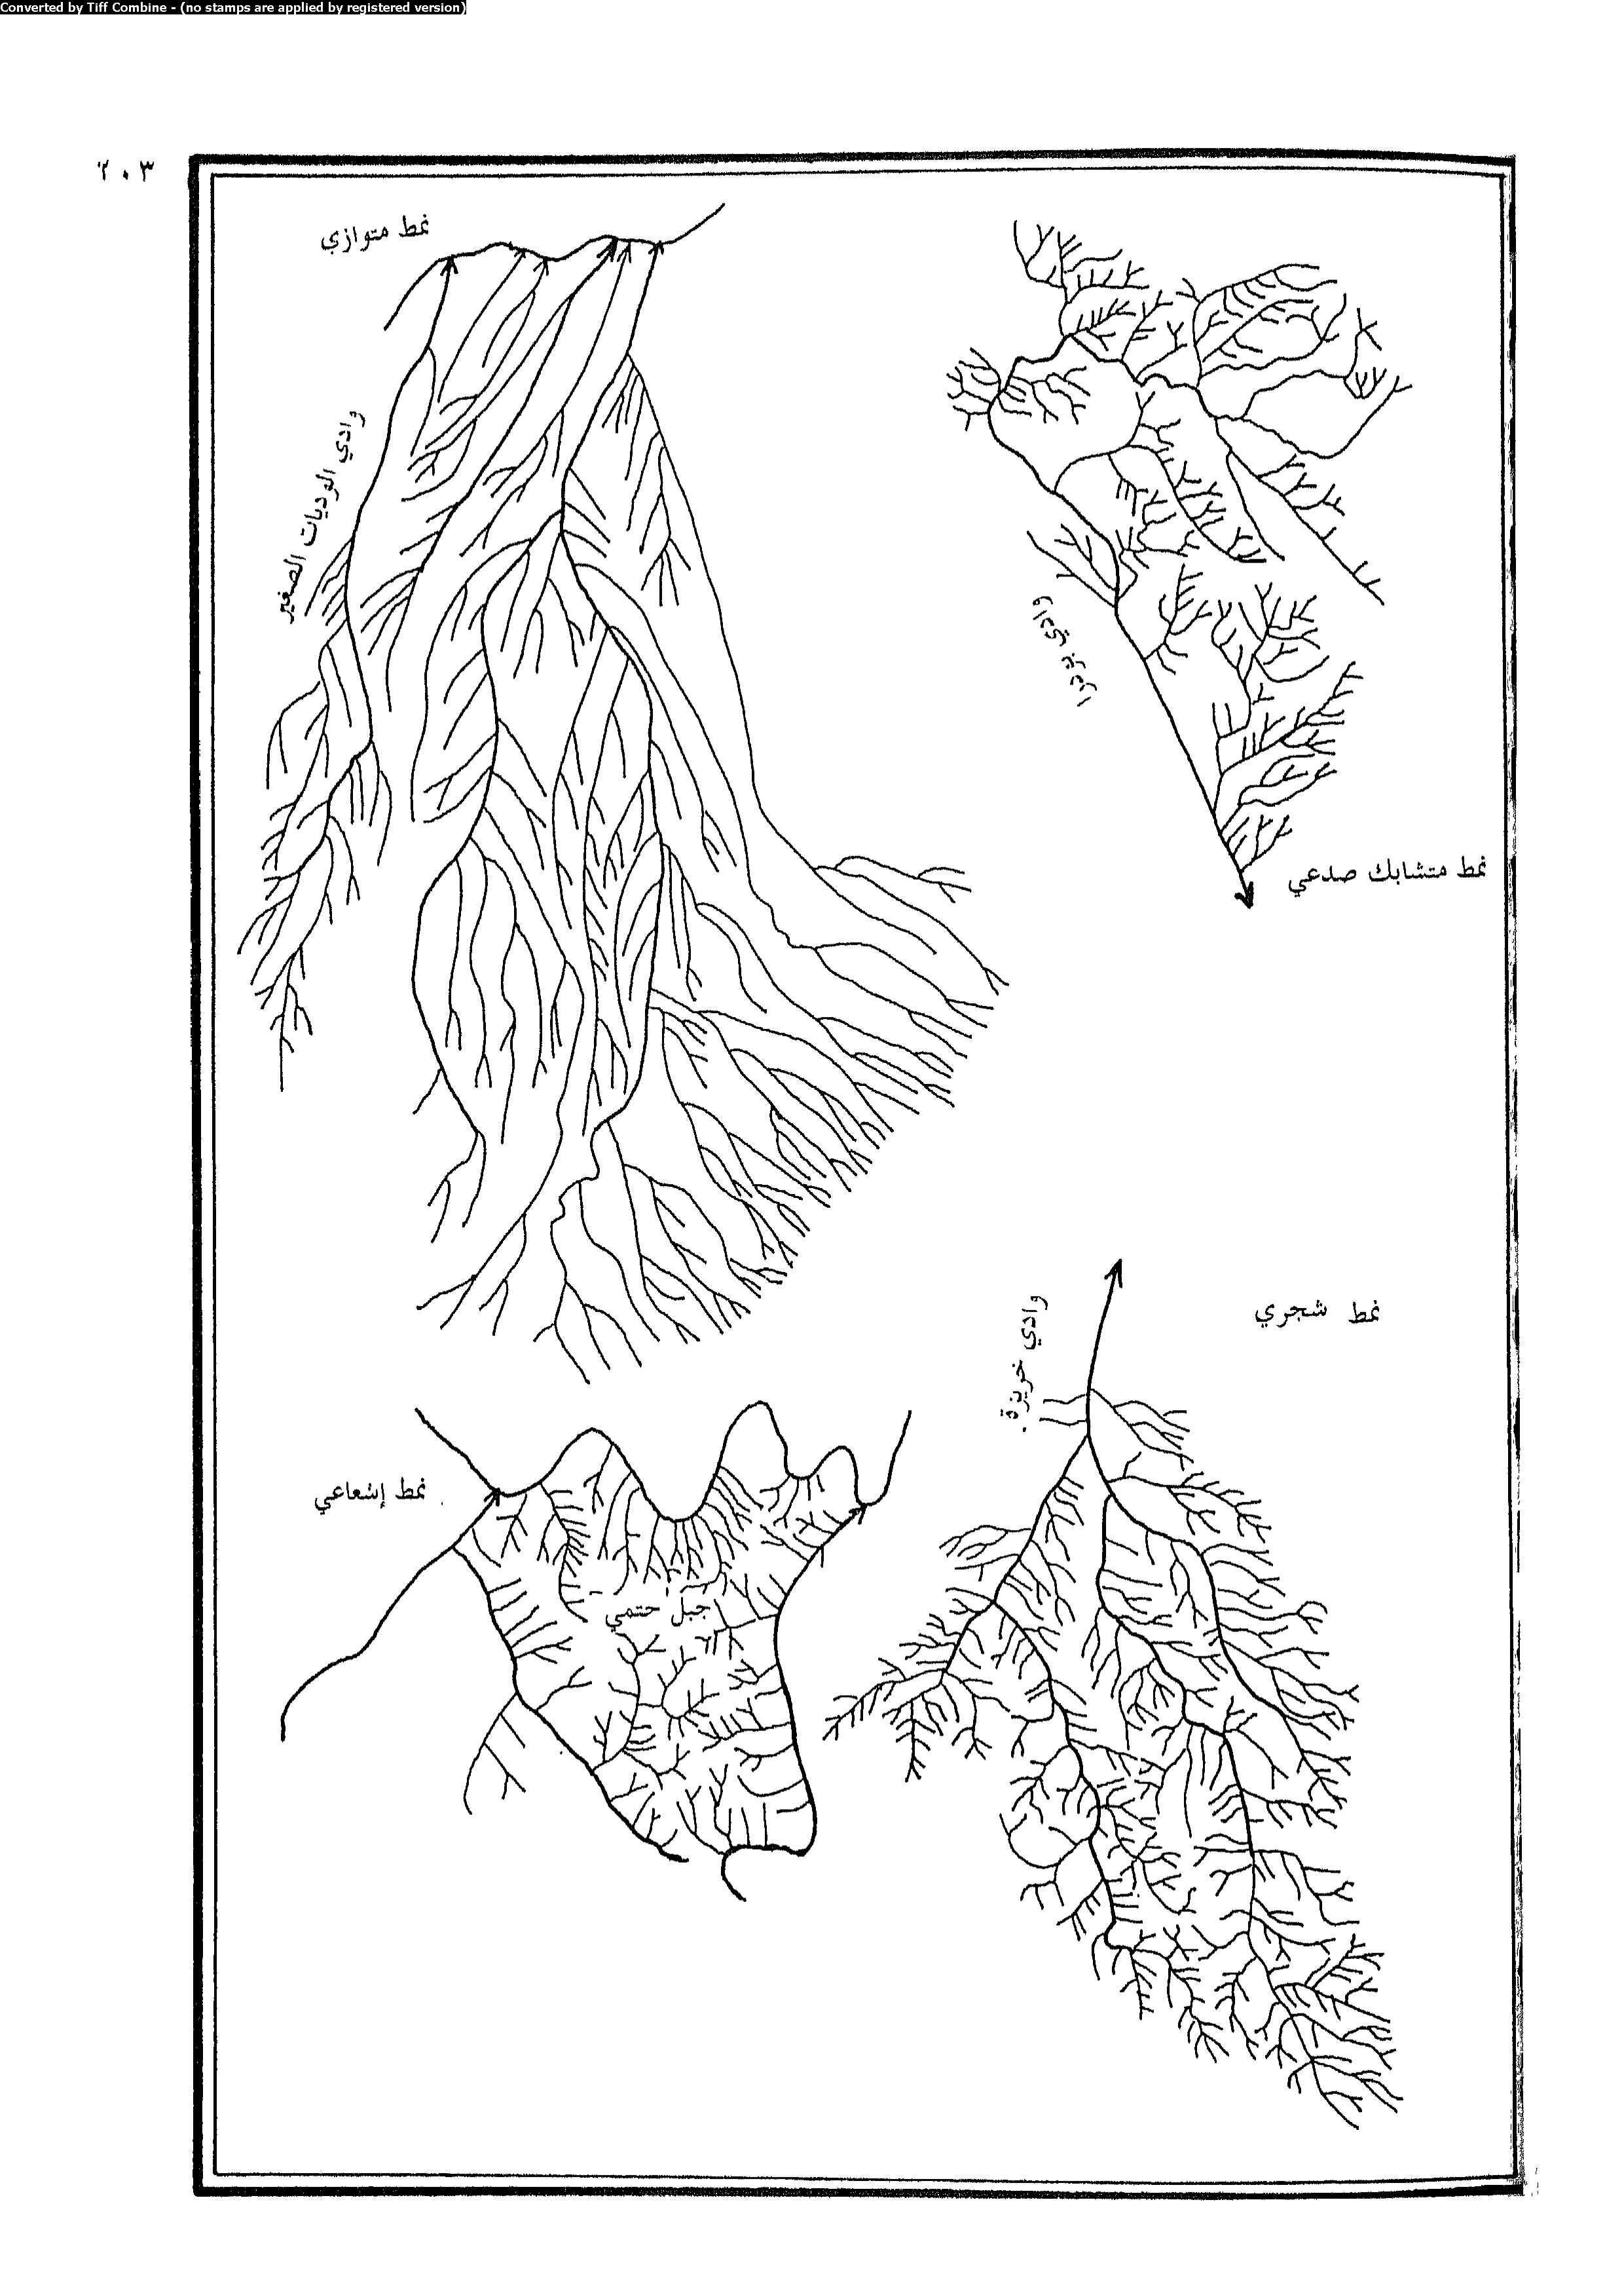 Converted by Tiff Combine - (no stamps are applied by registered version)
٢٠٣
نمط متوازي
وادي الوديات الصغير
وادي
نمط متشابك صدعي
نمط شجري
وادي خريزة
نمط إشعاعي
جبل حتمي